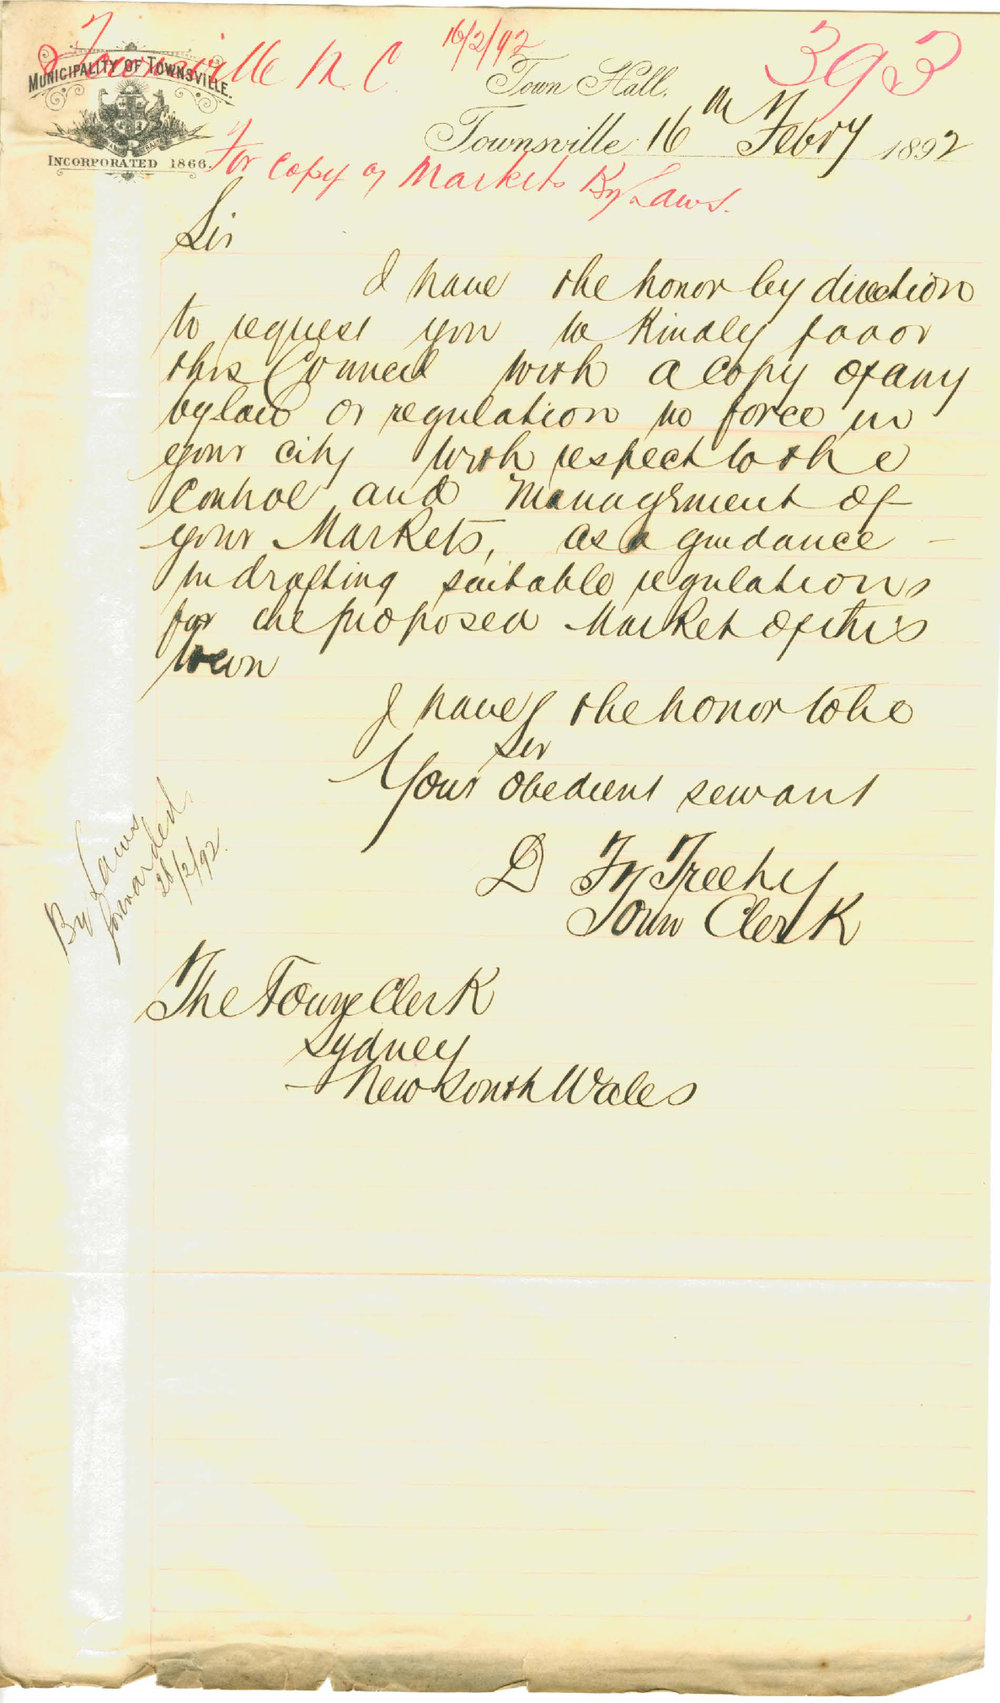 Townsville M. C.
16/2/92
393
MUNICIPALITY OF TOWNSVILLE.
INCORPORATED 1866.
Town Hall,
Townsville 16th Febry 1892
For copy of Markets By Laws.
Sir
I have the honor by direction
to request you to kindly favor
this Council with a copy of any
bylaw or regulation in force in
your city with respect to the
control and management of
your Markets, as a guidance
in drafting suitable regulations
for the proposed Market of this
town
I have the honor to be
Sir
Your obedient servant
Town Clerk
By Laws
forwarded
26/2/92.
The Town Clerk
Sydney
New South Wales